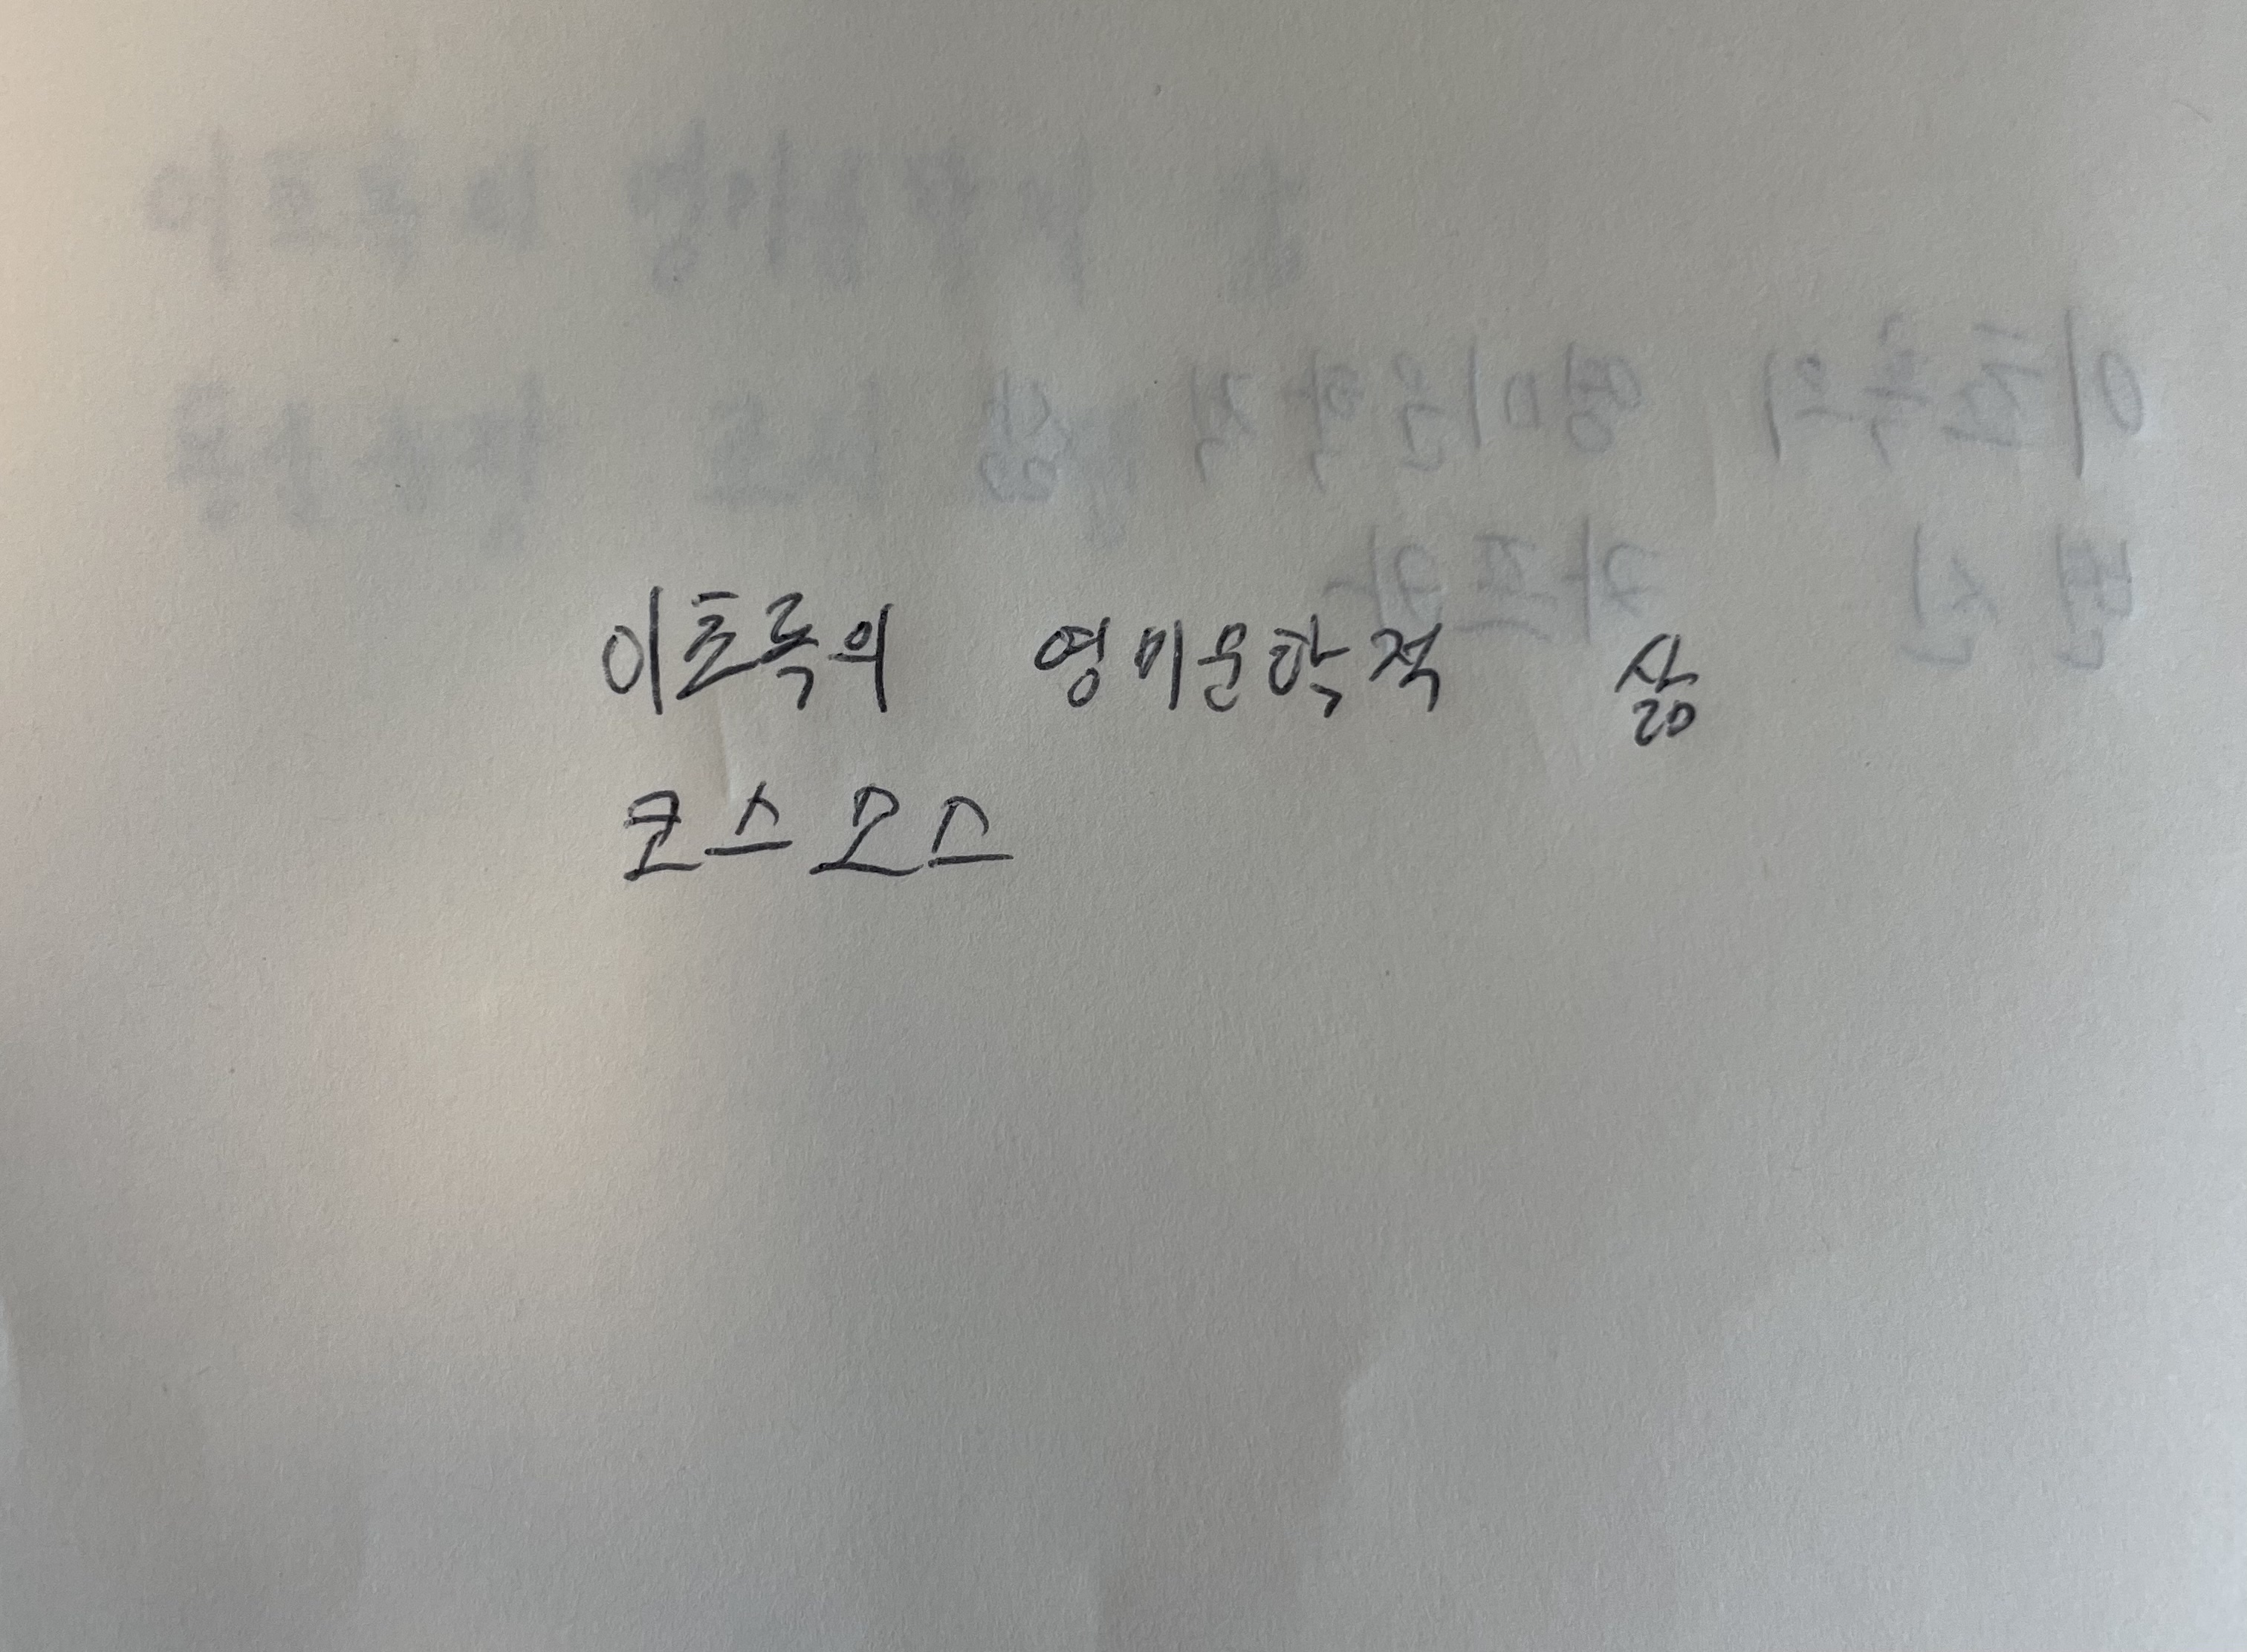 이초록의 영미문학적 삶
코스모스